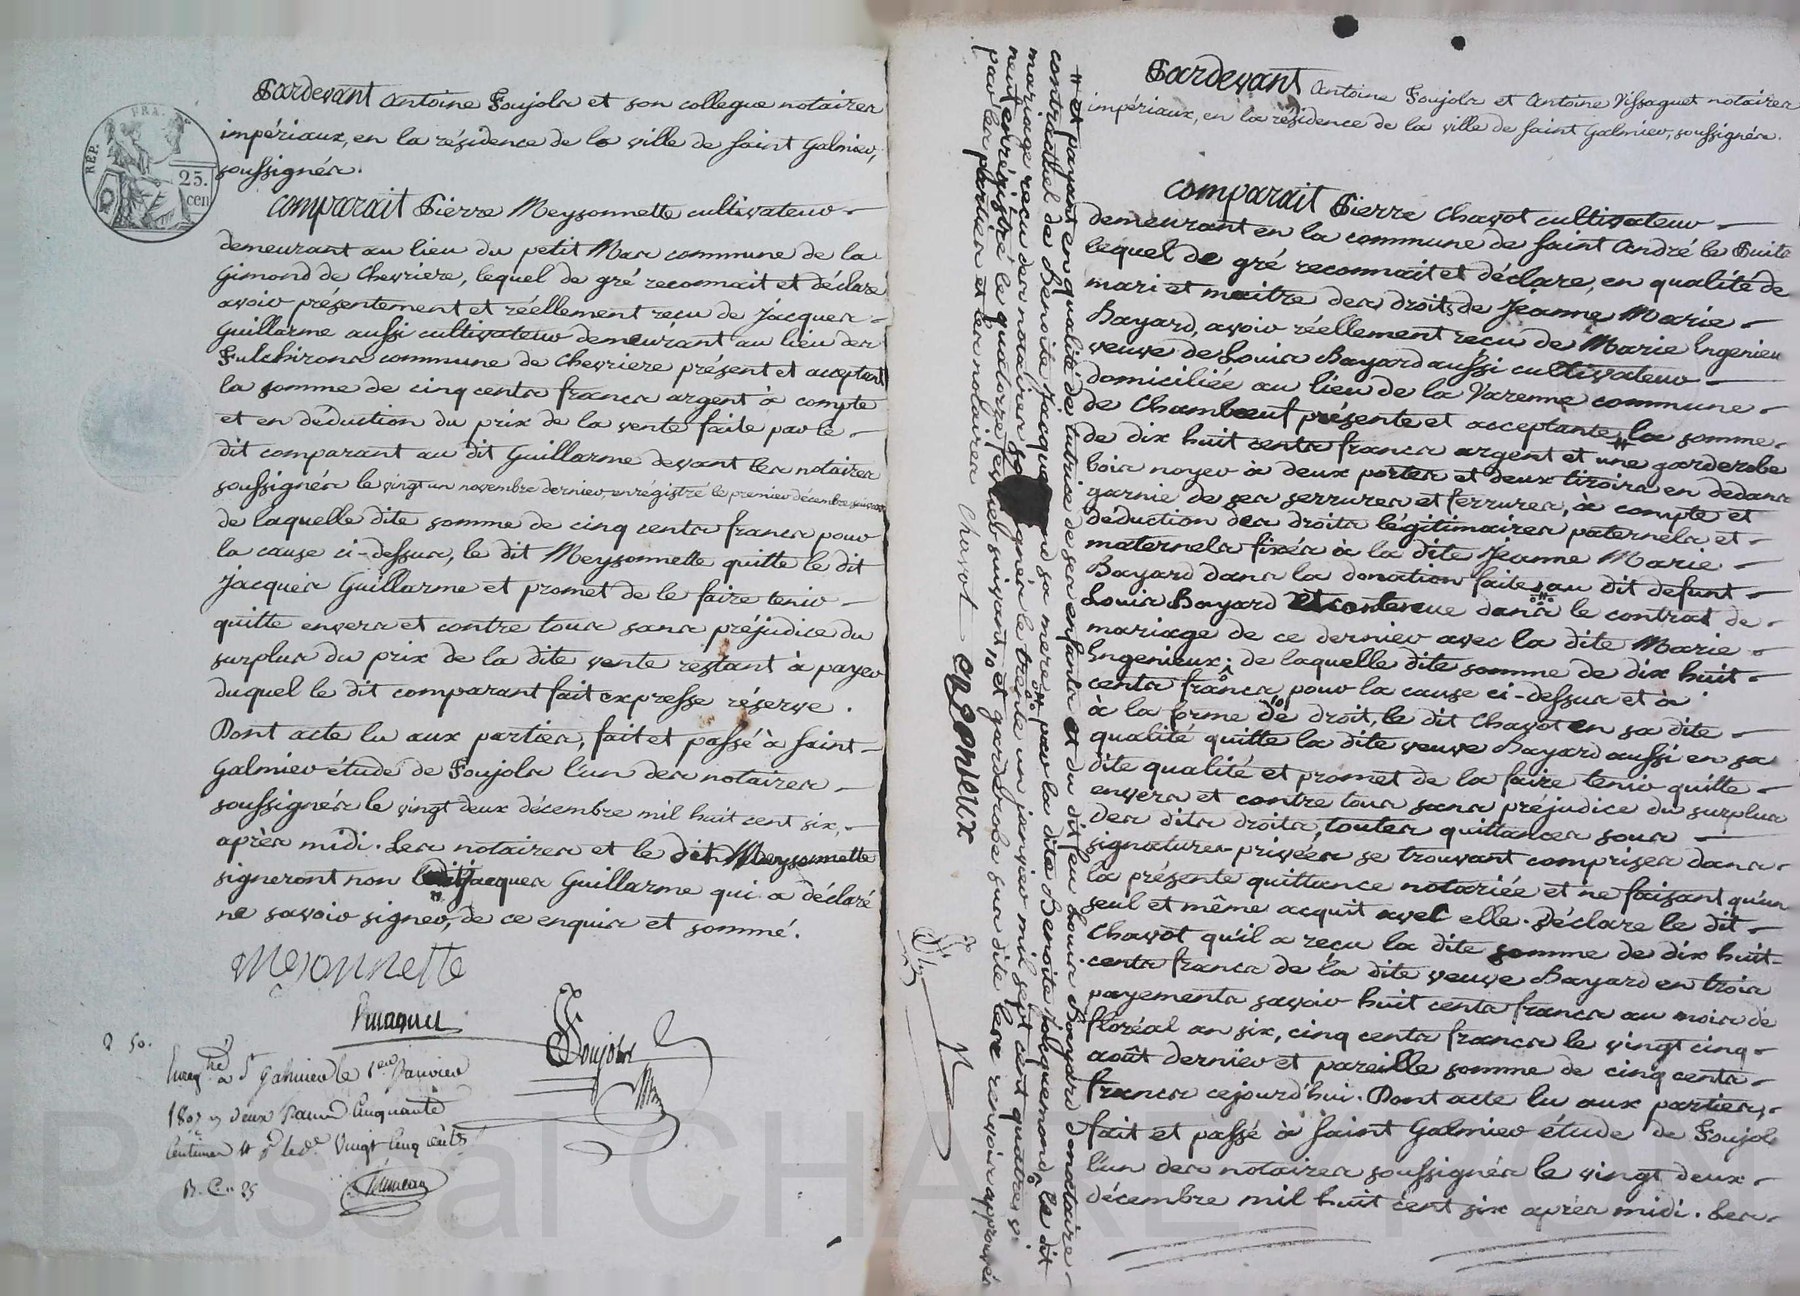 Pardevant Antoine Poujols et son collegue notaires
impériaux, en la résidence de la ville de saint Galmier,
soussignés.
RÉP. FRA.
25.
cen
Comparait Pierre Meysonnette cultivateur
demeurant au lieu du petit Mas commune de la
Gimond de Chevriere, lequel de gré reconnait et déclare
avoir présentement et réellement reçu de Jacques
Guillarme aussi cultivateur demeurant au lieu des
Fulchirons commune de Chevriere présent et acceptant
la somme de cinq cents francs argent à compte
et en déduction du prix de la vente faite par le
dit comparant au dit Guillarme devant les notaires
soussignés le vingt un novembre dernier enrégistré le premier décembre suivant
de laquelle dite somme de cinq cents francs pour
la cause ci-dessus, le dit Meysonnette quitte le dit
Jacques Guillarme et promet de le faire tenir
quitte envers et contre tous sans préjudice du
surplus du prix de la dite vente restant à payer
duquel le dit comparant fait expresse réserve.
Dont acte lu aux parties, fait et passé à saint
Galmier étude de Poujols l'un des notaires
soussignés le vingt deux décembre mil huit cent six,
après midi. Les notaires et le dit Meysonnette
signeront non Jacques Guillarme qui a déclaré
ne savoir signer, de ce enquis et sommé.
Mesonnette
Vissaguet
Poujols
2 50.
Enregtré à St Galmier le 1er Janvier
1807 deux francs Cinquante
Centimes Vingt Cinq Cents
R. C. 25
Pardevant Antoine Poujols et Antoine Vissaguet notaires
impériaux, en la résidence de la ville de saint Galmier, soussignés.
Comparait Pierre Chavot cultivateur
demeurant en la commune de saint André le Puits
lequel de gré reconnait et déclare, en qualité de
mari et maitre des droits de Jeanne Marie
Bayard, avoir réellement reçu de Marie Engenieu
veuve de Louis Bayard aussi cultivateur
domiciliée au lieu de la Varenne commune
de Chambœuf présente et acceptante # la somme
de dix huit cents francs argent et une garderobe
bois noyer à deux portes et deux tiroirs en dedans
garnie de ses serrures et ferrures, à compte et
déduction des droits légitimaires paternels et
maternels fixés à la dite Jeanne Marie
Bayard dans la donation faite au dit défunt
Louis Bayard et contenue dans le contrat de
mariage de ce dernier avec la dite Marie
Engenieux; de laquelle dite somme de dix huit
cents francs pour la cause ci-dessus et à
à la forme de droit, le dit Chavot en sa dite
qualité quitte la dite veuve Bayard aussi en sa
dite qualité et promet de la faire tenir quitte
envers et contre tous sans préjudice du surplus
des dits droits, toutes quittances sous
signatures privées se trouvant comprises dans
la présente quittance notariée et ne faisant qu'un
seul et même acquit avec elle. Déclare le dit
Chavot qu'il a reçu la dite somme de dix huit
cents francs de la dite veuve Bayard en trois
payements savoir huit cents francs au mois de
floréal an six, cinq cents francs le vingt cinq
août dernier et pareille somme de cinq cents
francs cejourd'hui. Dont acte lu aux parties,
fait et passé à saint Galmier étude de Poujols
l'un des notaires soussignés le vingt deux
décembre mil huit cent six après midi. Les
# et payant en qualité de tutrice de ses enfants et du dit feu Louis Bayard donataire
contractuel de Benoite Jacquemond sa mere par la dite Benoite Jacquemond le dit
mariage reçu des notaires soussignés le trente un janvier mil sept cent quatre vingt
neuf enrégistré le quatorze février suivant, et garderobe sus dite les renvois approuvés
par les parties et les notaires
Chavot
engenieux
Pascal CHAREYRON